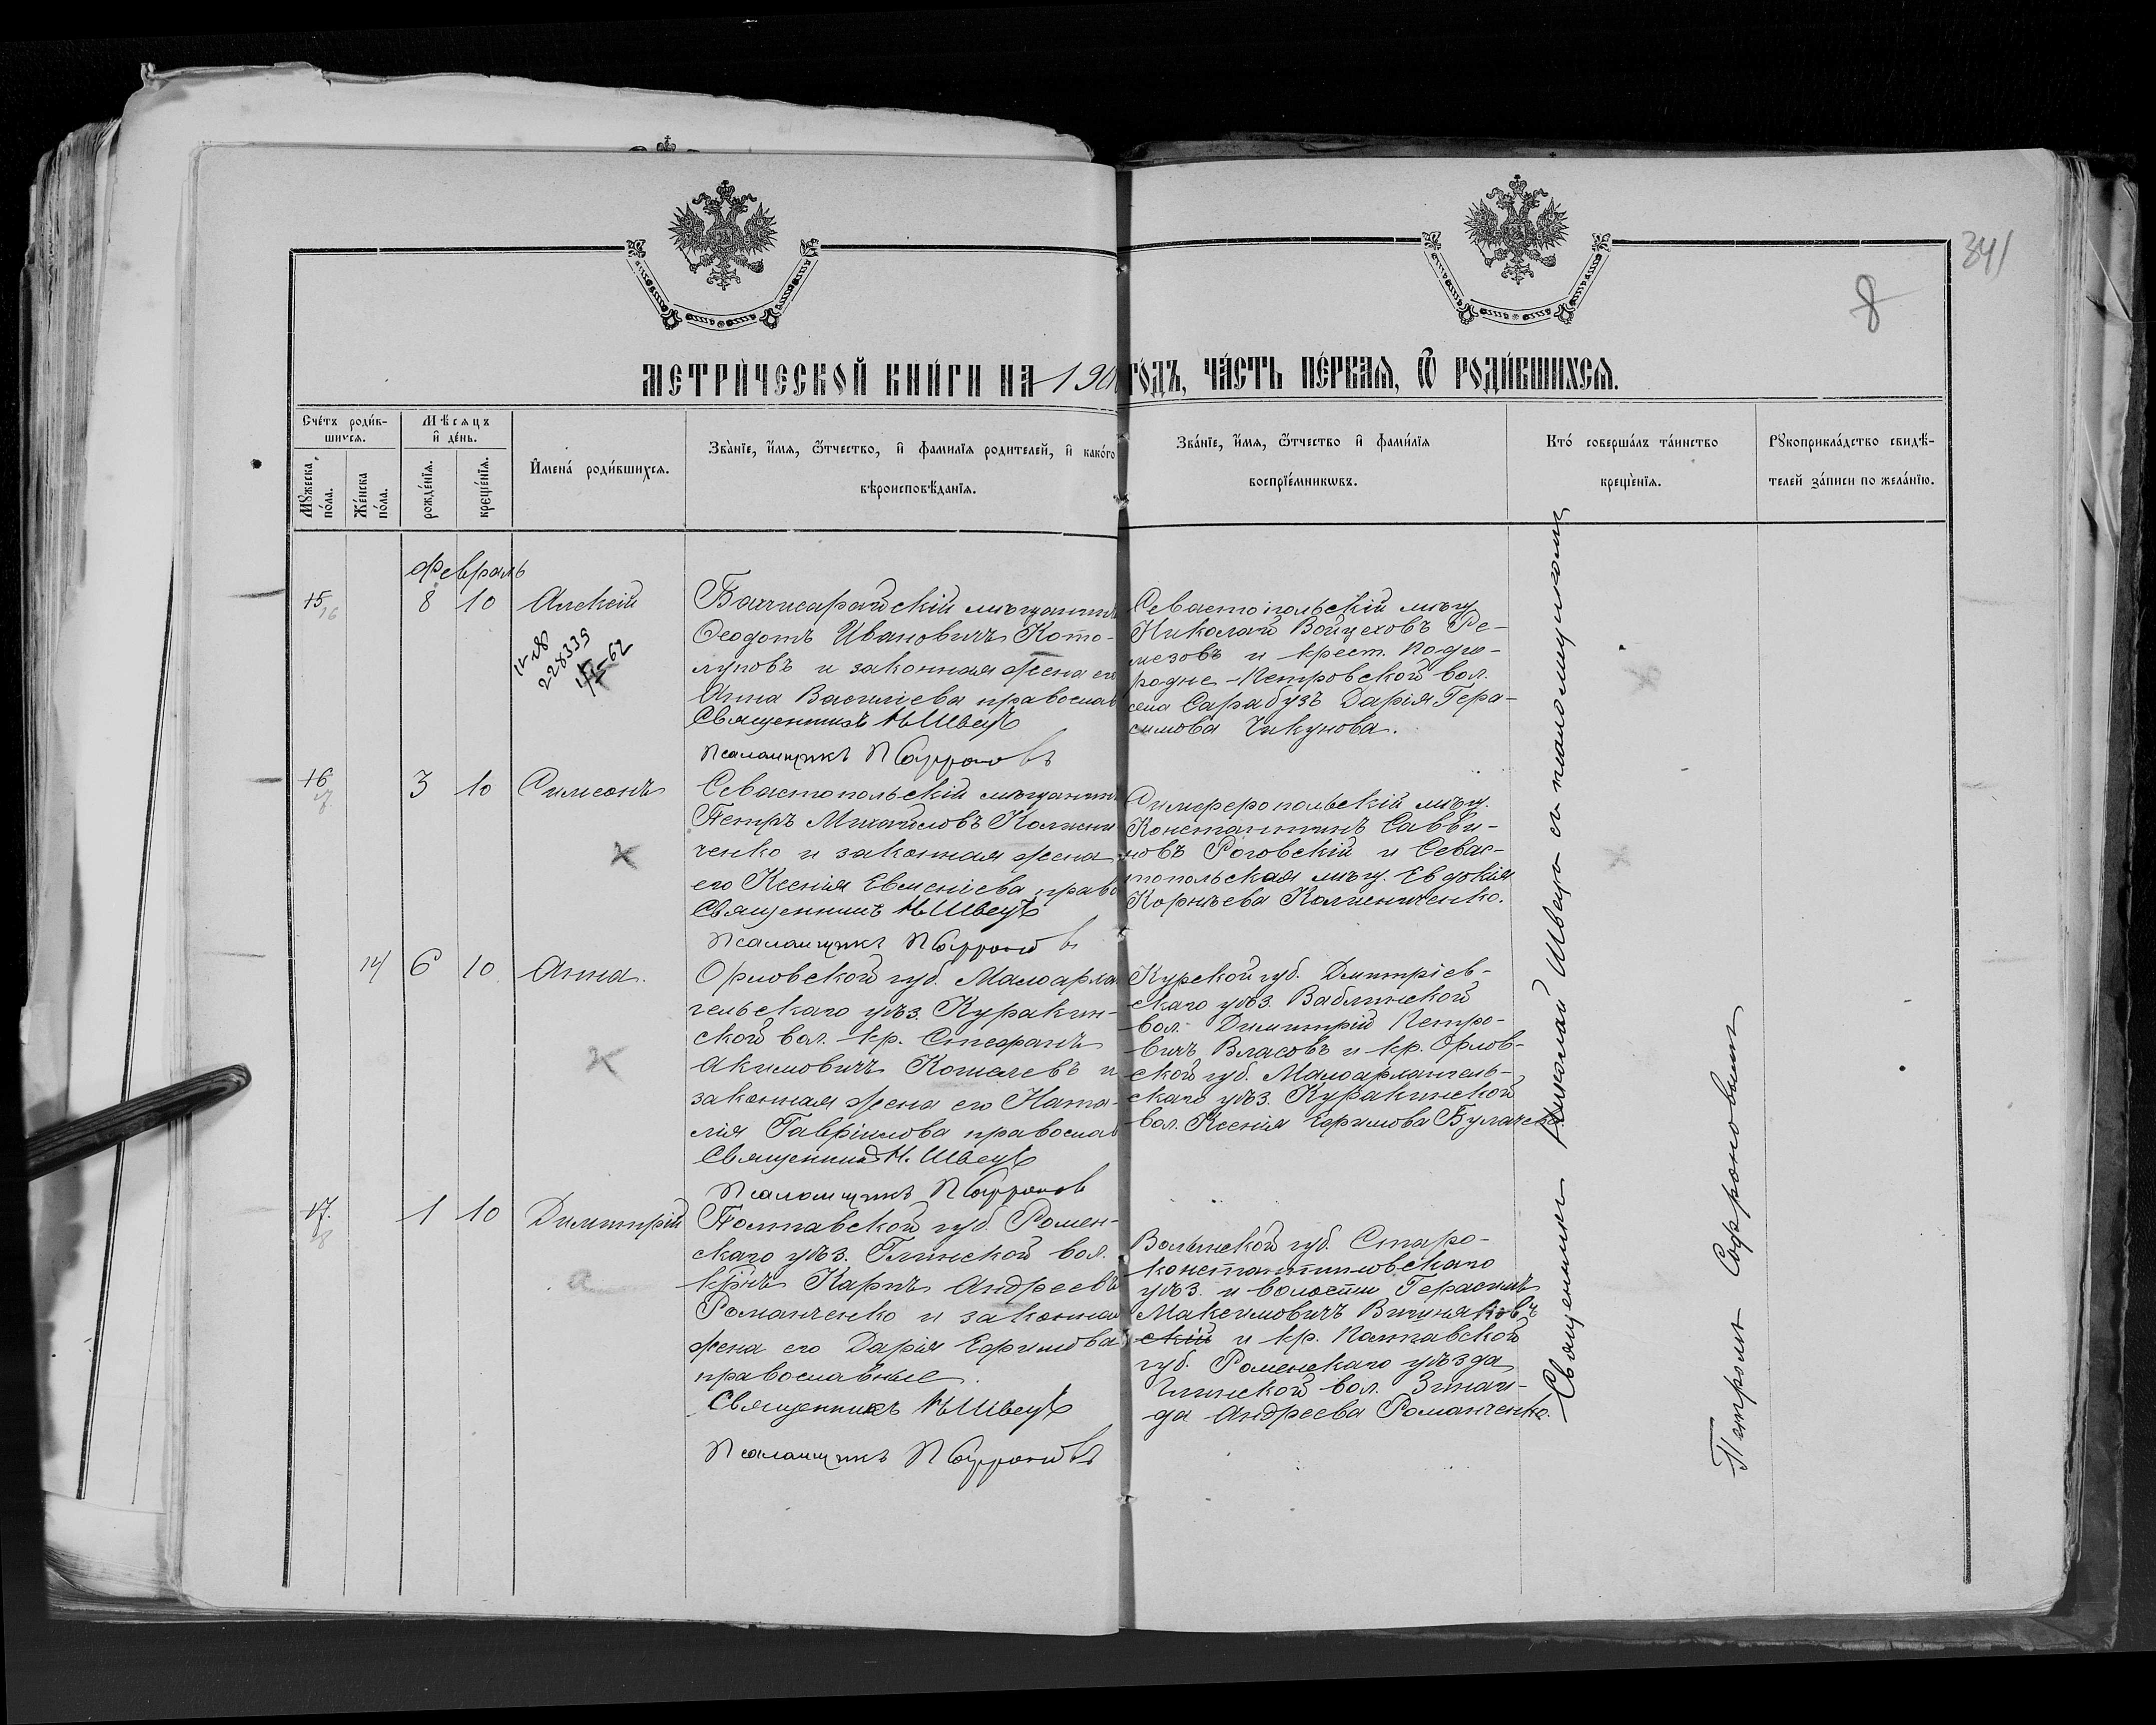 341
8
МЕТРИ́ЧЕСКОЙ КНИ́ГИ НА 190 ГОДЪ, ЧА́СТЬ ПЕ́РВАЯ, Ѿ РОДИ́ВШИХСЯ.
Сче́тъ роди́в-
шихся.
Мѣсяцъ
и҆ де́нь.
Мꙋ́жеска
по́ла.
Же́нска
по́ла.
рожде́нїя.
креще́нїя.
И҆мена́ роди́вшихся.
Зва́нїе, и҆́мя, ѻ҆́тчество, и҆ фамилїя родителей, и҆ како́го
вѣроисповѣ́данїя.
Зва́нїе, и҆́мя, ѻ҆́тчество и҆ фами́лїя
воспрїе́мникѡвъ.
Кто́ соверша́лъ та́инство
креще́нїя.
Рꙋкоприкла́дство свидѣ́-
телей за́писи по жела́нїю.
Февраль
15
16
8 10 Алексій
228339
Бахчисарайскій мѣщанинъ
Ѳеодотъ Ивановичъ Кото-
луповъ и законная жена его
Анна Василіева православ
Священникъ Н Швецъ
Псаломщикъ П Софроновъ
Севастопольскій мѣщ.
Николай Войцеховъ Ре-
мезовъ и крест. Подго-
родне-Петровской вол.
села Сарабузъ Дарія Гера-
симова Чикунова.
16
3 10 Симеонъ
Севастопольскій мѣщанинъ
Петръ Михайловъ Колисни
ченко и законная жена
его Ксенія Евменіева право
Священникъ Н Швецъ
Псаломщикъ П Софроновъ
Симферопольскій мѣщ.
Константинъ Савви-
новъ Роговскій и Севас-
топольская мѣщ. Евдокія
Корнѣева Колисниченко.
14 6 10 Анна.
Орловской губ. Малоархан
гельскаго уѣз. Куракин-
ской вол. кр. Стефанъ
Акимовичъ Кошелевъ и
законная жена его Ната-
лія Гавріилова православ
Священникъ Н. Швецъ
Псаломщикъ П Софронов
Курской губ. Дмитріев-
скаго уѣз. Ваблинской
вол. Димитрій Петро-
вичъ Власовъ и кр. Орлов-
ской губ. Малоархангель-
скаго уѣз. Куракинской
вол. Ксенія Ефимова
17.
1 10 Димитрій
Полтавской губ. Ромен-
скаго уѣз. Глинской вол.
кр-нъ Карпъ Андреевъ
Романченко и законная
жена его Дарія Ефимова
православные.
Священникъ Н Швецъ
Псаломщикъ П Софроновъ
Волынской губ. Старо-
константиновскаго
уѣз. и волости Герасимъ
Максимовичъ Вишняковъ
скій и кр. Полтавской
губ. Роменскаго уѣзда
Глинской вол. Зинаи-
да Андреева Романченко.
Священникъ Николай Швецъ съ псаломщикомъ
Петромъ Софроновымъ